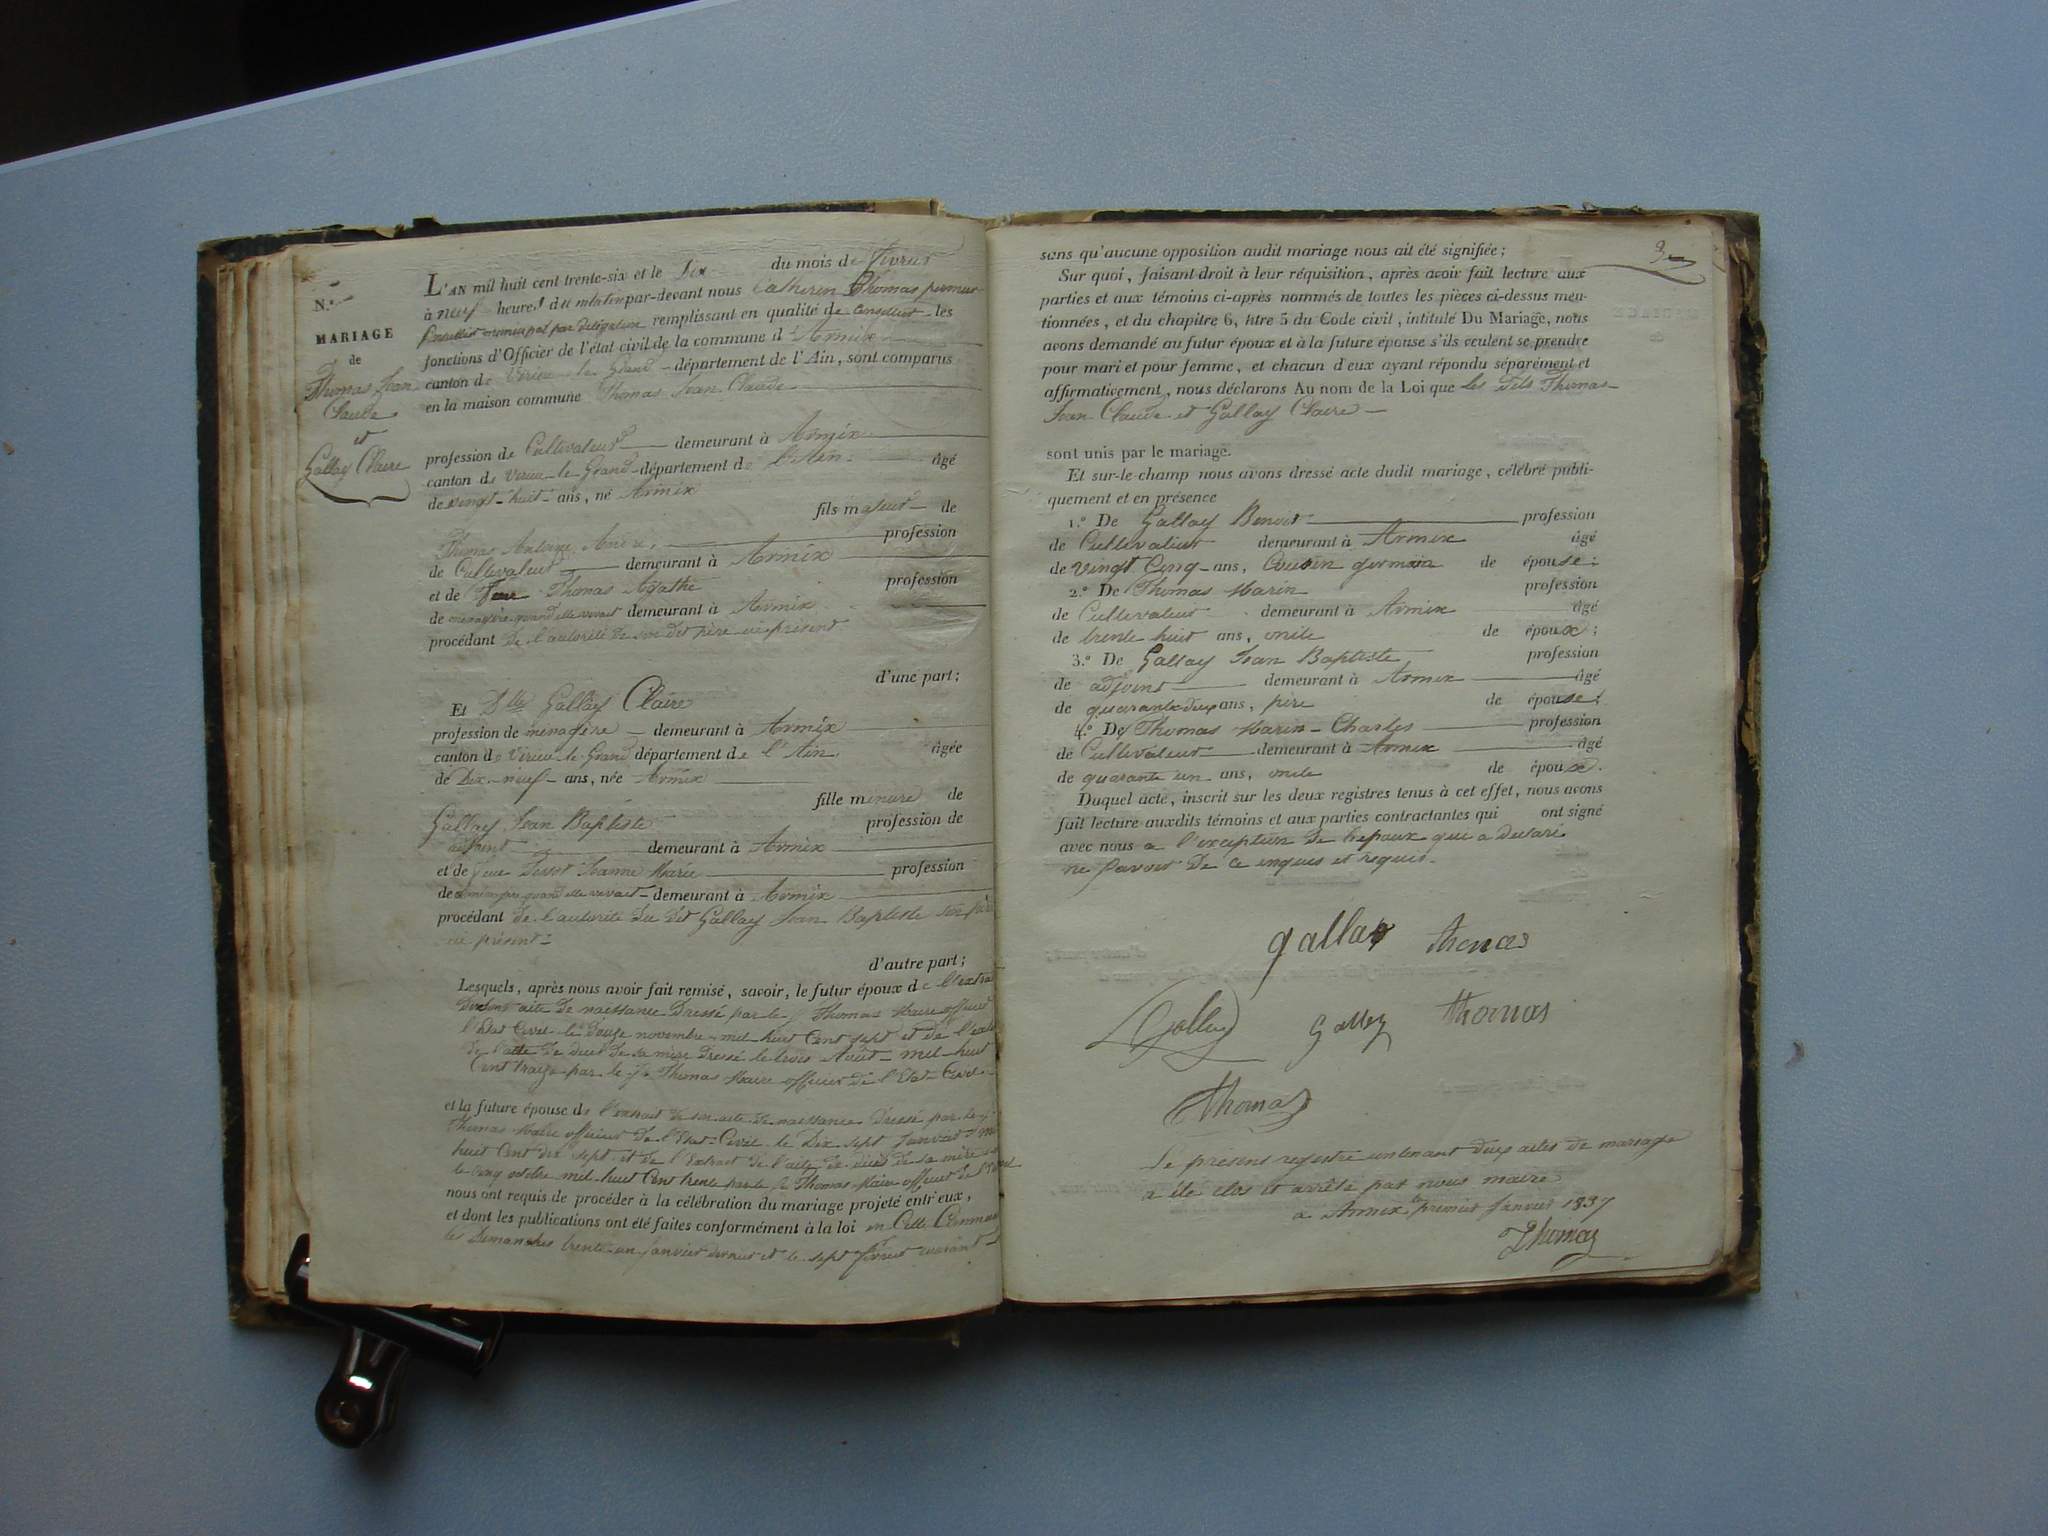 N.°
MARIAGE
de
Thomas Jean
Claude
et
Gallay Claire
L'AN mil huit cent trente-six et le Dix du mois de février
à neuf heures du matin par-devant nous Catherin Thomas premier
Conseiller municipal par délégation remplissant en qualité de conseiller les
fonctions d'Officier de l'état civil de la commune d'Armix
canton de Virieu le Grand département de l'Ain, sont comparus
en la maison commune Thomas Jean Claude
profession de Cultivateur demeurant à Armix
canton de Virieu-le-Grand département de l'Ain âgé
de vingt-huit ans, né Armix
fils majeur de
Thomas Antoine Armix profession
de Cultivateur demeurant à Armix
et de feue Thomas Agathe profession
de ménagère quand elle vivait demeurant à Armix
procédant de l'autorité de son dit père ici présent
d'une part;
Et Dlle Gallay Claire
profession de ménagère demeurant à Armix
canton de Virieu-le-Grand département de l'Ain âgée
de Dix-neuf ans, née Armix
fille mineure de
Gallay Jean Baptiste profession de
adjoint demeurant à Armix
et de feue Jeanne Marie profession
de ménagère quand elle vivait demeurant à Armix
procédant de l'autorité du dit Gallay Jean Baptiste son père
ici présent
d'autre part;
Lesquels, après nous avoir fait remise, savoir, le futur époux de l'extrait
acte de naissance Dressé par le Thomas Maire officier
l'Etat Civil le Douze novembre mil huit Cent sept et de l'extrait
de l'acte de décès de sa mère Dressé le trois Août mil huit
Cent traize par le Thomas Maire officier de l'Etat Civil
et la future épouse de l'extrait de son acte de naissance Dressé par le
Thomas Maire officier de l'Etat Civil le Dix sept Janvier mil
huit Cent dix sept et de l'Extrait de l'acte de décès de sa mère
le cinq octobre mil huit Cent trente par le Thomas Maire officier de l'Etat
nous ont requis de procéder à la célébration du mariage projeté entr'eux,
et dont les publications ont été faites conformément à la loi en Cette Commune
les Dimanches trente-un janvier dernier et le sept février courant
3
sans qu'aucune opposition audit mariage nous ait été signifiée;
Sur quoi, faisant droit à leur réquisition, après avoir fait lecture aux
parties et aux témoins ci-après nommés de toutes les pièces ci-dessus men-
tionnées, et du chapitre 6, titre 5 du Code civil, intitulé Du Mariage, nous
avons demandé au futur époux et à la future épouse s'ils veulent se prendre
pour mari et pour femme, et chacun d'eux ayant répondu séparément et
affirmativement, nous déclarons Au nom de la Loi que les dits Thomas
Jean Claude et Gallay Claire
sont unis par le mariage.
Et sur-le-champ nous avons dressé acte dudit mariage, célébré publi-
quement et en présence
1.° De Gallay Benoit profession
de Cultivateur demeurant à Armix âgé
de vingt Cinq ans, Cousin germain de épouse;
2.° De Thomas Marin profession
de Cultivateur demeurant à Armix âgé
de trente huit ans, oncle de époux;
3.° De Gallay Jean Baptiste profession
de adjoint demeurant à Armix âgé
de quarante deux ans, père de épouse;
4.° De Thomas Marin-Charles profession
de Cultivateur demeurant à Armix âgé
de quarante un ans, oncle de époux.
Duquel acte, inscrit sur les deux registres tenus à cet effet, nous avons
fait lecture auxdits témoins et aux parties contractantes qui ont signé
avec nous à l'exception de l'epoux qui a déclaré
ne savoir de ce enquis et requis.
gallay thomas
Gallay Galley thomas
thomas
Le présent registre contenant deux actes de mariage
a été clos et arrêté par nous maire
a Armix le premier Janvier 1837
Thomas